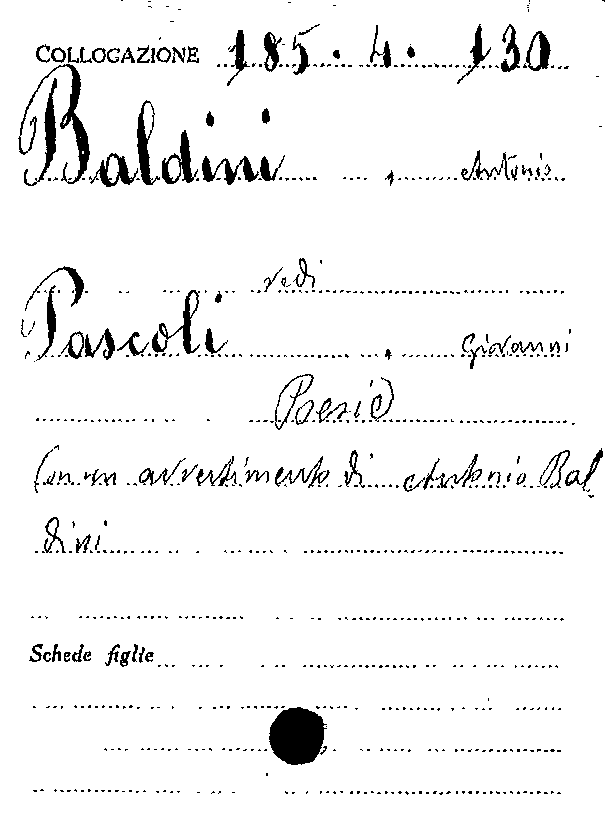 COLLOCAZIONE 185.4.130
Baldini, Antonio
vedi
Pascoli, Giovanni
Poesie
Con un avvertimento di Antonio Bal
dini
Schede figlie